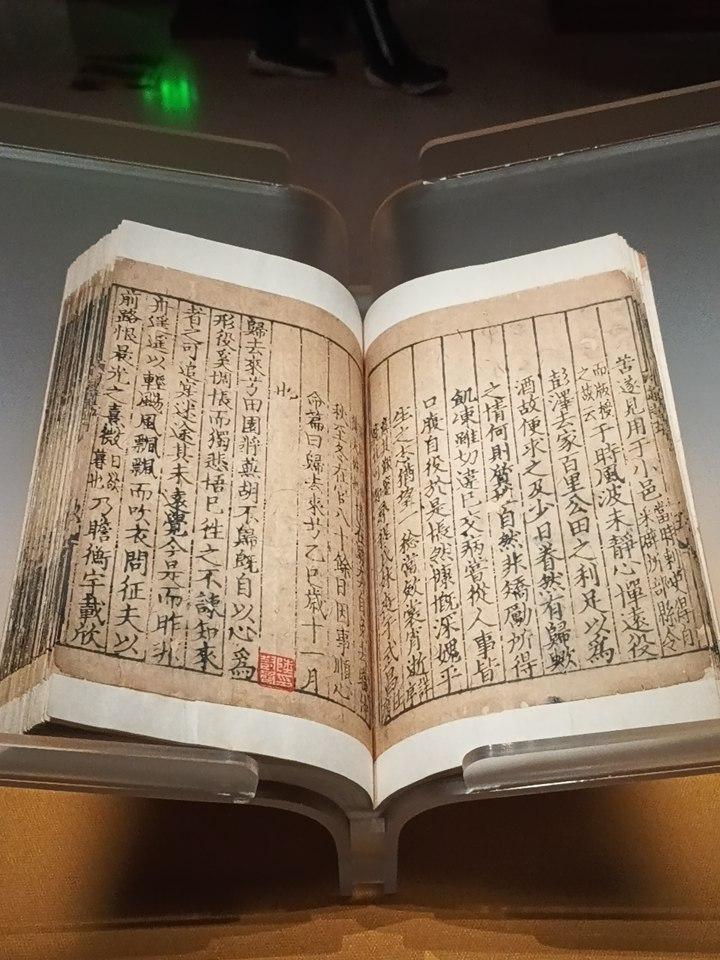 苦遂見用于小邑當時刺史得自采辟所部縣令
而版授之故云于時風波未靜心憚遠役
彭澤去家百里公田之利足以為
酒故便求之及少日眷然有歸歟
之情何則質性自然非矯勵所得
飢凍雖切違己交病嘗從人事皆
口腹自役於是悵然慷慨深愧平
生之志猶望一稔當斂裳宵逝
秋至冬在官八十餘日因事順心
命篇曰歸去來兮乙巳歲十一月
也
歸去來兮田園將蕪胡不歸既自以心為
形役奚惆悵而獨悲悟已往之不諫知來
者之可追寔迷途其未遠覺今是而昨非
舟遙遙以輕颺風飄飄而吹衣問征夫以
前路恨晨光之熹微日欲暮也乃瞻衡宇載欣